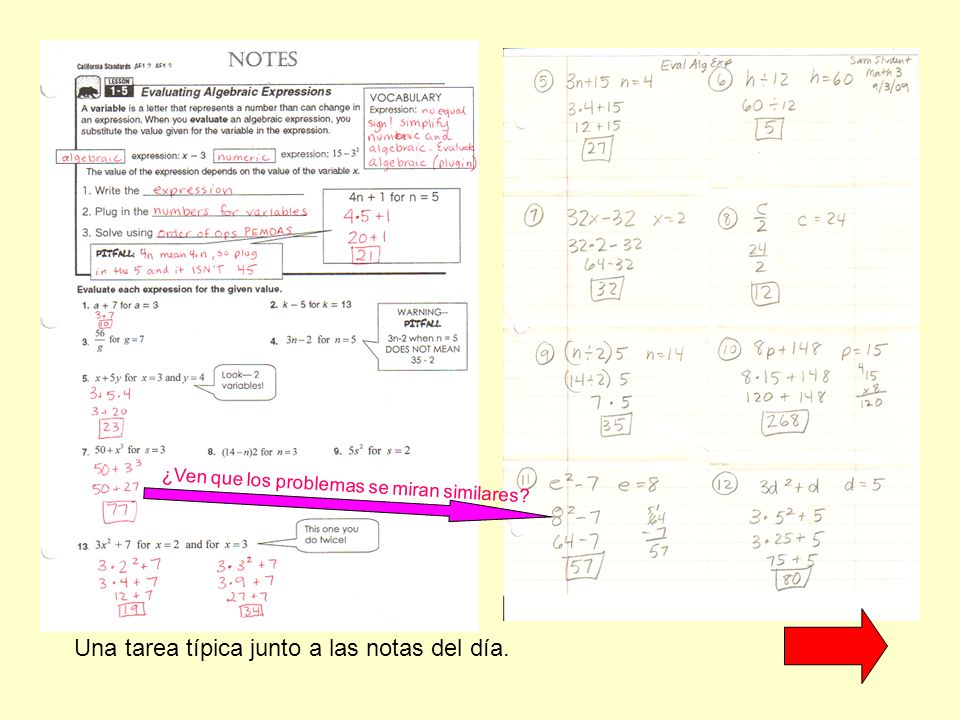 NOTES
California Standards AF1.2, AF1.3
LESSON
1-5 Evaluating Algebraic Expressions
A variable is a letter that represents a number than can change in
an expression. When you evaluate an algebraic expression, you
substitute the value given for the variable in the expression.
VOCABULARY
Expression: no equal
sign! simplify
numeric and
algebraic. Evaluate
algebraic (plug in)
algebraic expression: x − 3 numeric expression: 15-3²
The value of the expression depends on the value of the variable x.
1. Write the expression
2. Plug in the numbers for variables
3. Solve using order of ops PEMDAS
4n + 1 for n = 5
4•5+1
20+1
21
PITFALL: 4n mean 4•n, so plug
in the 5 and it ISN'T 45
Evaluate each expression for the given value.
1. a + 7 for a = 3
3+7
10
2. k − 5 for k = 13
3. 56/g for g = 7
4. 3n−2 for n = 5
WARNING--
PITFALL
3n-2 when n = 5
DOES NOT MEAN
35 - 2
5. x+5y for x = 3 and y = 4
3+5•4
3+20
23
Look— 2
variables!
7. 50+x³ for s = 3
50+3³
50+27
77
8. (14−n)2 for n = 3
9. 5s² for s = 2
¿Ven que los problemas se miran similares?
13. 3x² + 7 for x = 2 and for x = 3
This one you
do twice!
3•2²+7
3•4+7
12+7
19
3•3²+7
3•9+7
27+7
34
Eval Alg Exp
Sam Student
Math 3
9/3/09
5 3n+15 n=4
3•4+15
12+15
27
6 h÷12 h=60
60÷12
5
7 32x-32 x=2
32•2-32
64-32
32
8 C/2 c=24
24/2
12
9 (n÷2)5 n=14
(14÷2)5
7•5
35
10 8p+148 p=15
8•15+148
120+148
268
4
15
x8
120
11 e²-7 e=8
8²-7
64-7
57
- 7
57
12 3d²+d d=5
3•5²+5
3•25+5
75+5
80
Una tarea típica junto a las notas del día.